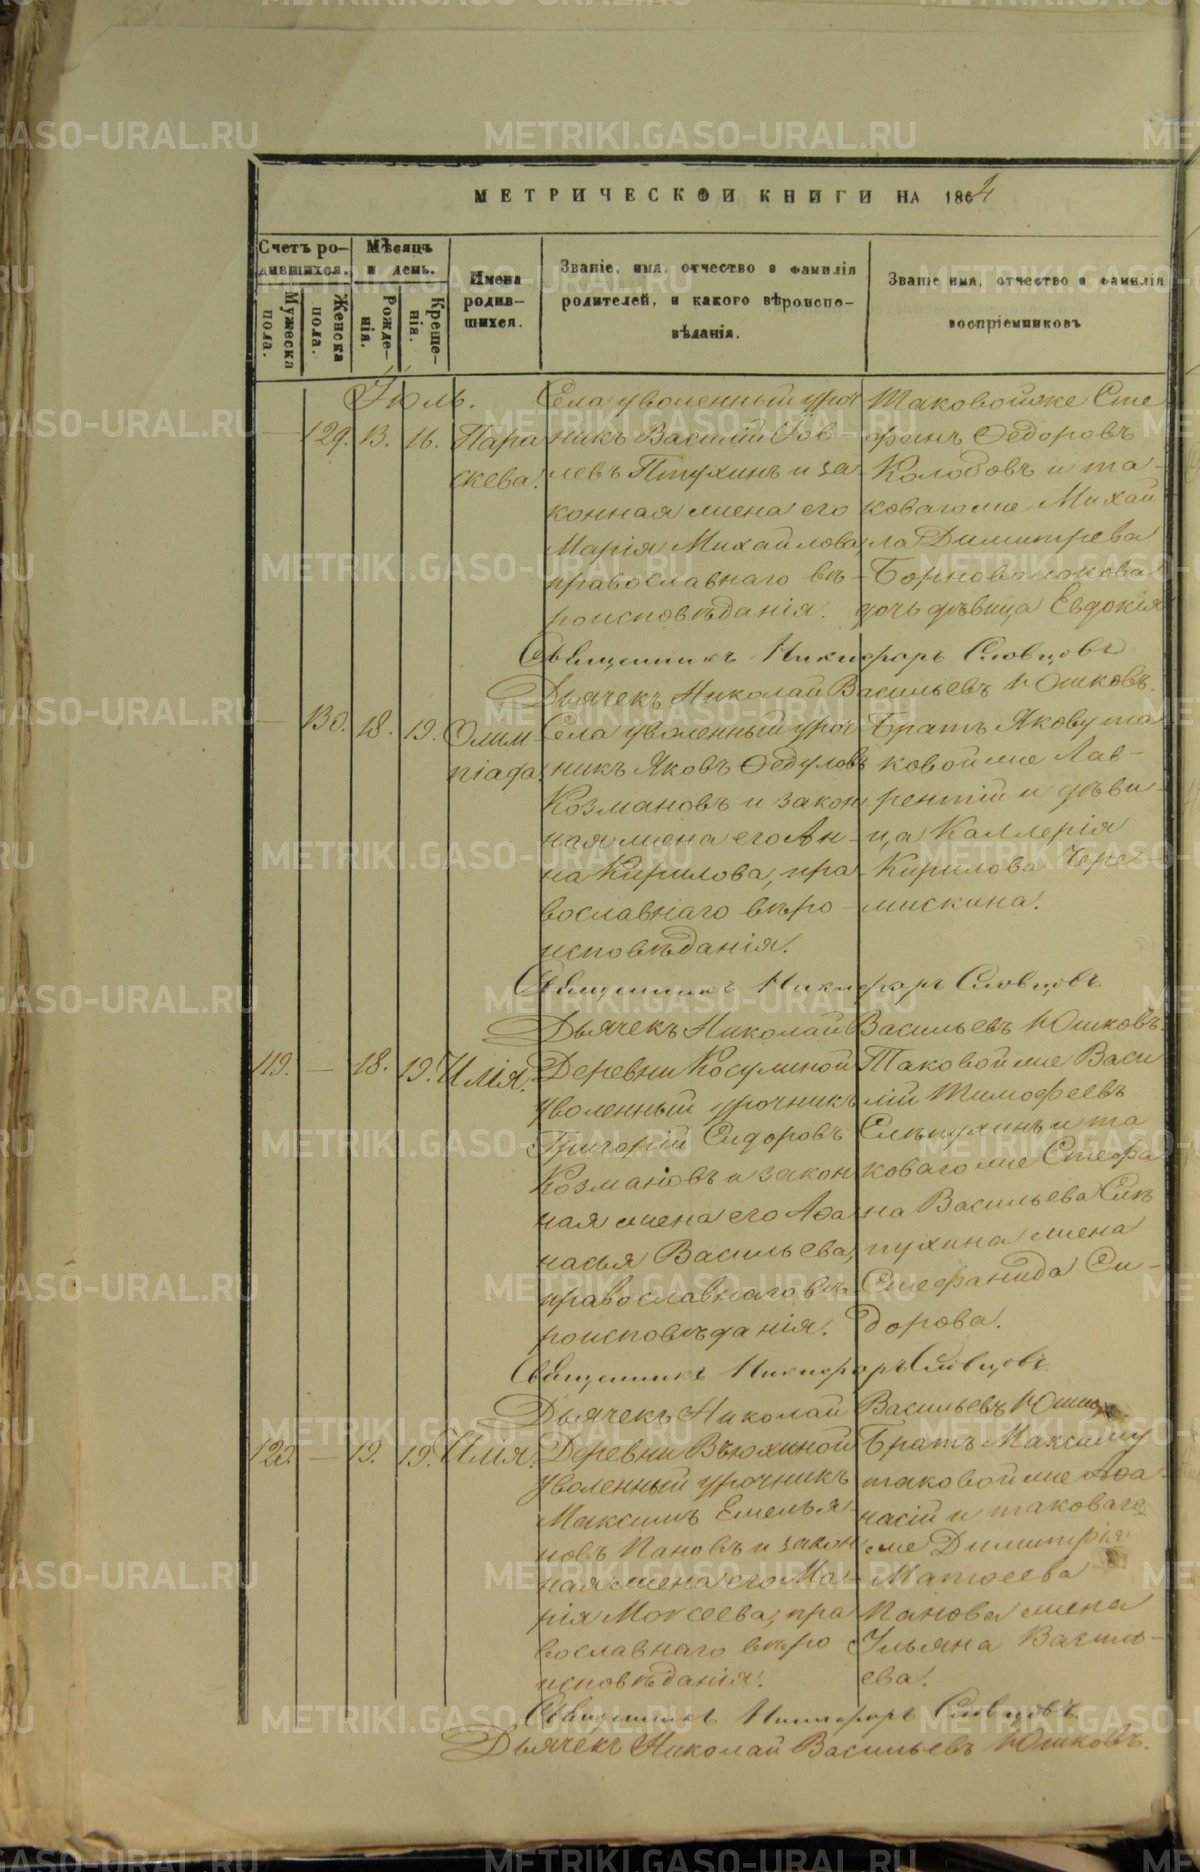 МЕТРИЧЕСКОЙ КНИГИ НА 1864
Счетъ ро-
дившихся.
Мѣсяцъ
и день.
Мужеска
пола.
Женска
пола.
Рожде-
нія.
Креще-
нія.
Имена
родив-
шихся.
Званіе, имя, отчество и фамилія
родителей, и какого вѣроиспо-
вѣданія.
Званіе имя, отчество и фамилія
воспріемниковъ
Іюль.
129. 13. 16. Пара
скева.
Села уволенный уроч
никъ Василій Іов
левъ Птухинъ и за
конная жена его
Марія Михайлова,
православнаго вѣ-
роисповѣданія.
Таковойже Сте
фанъ Ѳедоровъ
Колобовъ и та-
коваго же Михай
ла Димитрева
Борноволокова
дочь дѣвица Евдокія
Священникъ Никифоръ Словцовъ
Дьячекъ Николай Васильевъ Юшковъ.
130. 18. 19. Олим
піада.
Села уволенный уроч
никъ Яковъ Ѳедуловъ
Козмановъ и закон
ная жена его Ан-
на Кирилова, пра
вославнаго вѣро-
исповѣданія.
Братъ Якову та
ковой же Лав-
рентій и дѣви-
ца Каллерія
Кирилова Чере-
мискина.
Священникъ Никифоръ Словцовъ
Дьячекъ Николай Васильевъ Юшковъ.
119. — 18. 19. Илія.
Деревни Косулиной
уволенный урочникъ
Григорій Сидоровъ
Козмановъ и закон
ная жена его Аѳа
насья Васильева,
православнаго вѣ-
роисповѣданія.
Таковой же Васи
лій Тимофеевъ
Слѣпухинъ и та
коваго же Стефа
на Васильева Слѣ
пухина жена
Стефанида Си-
дорова.
Священникъ Никифоръ Словцовъ
Дьячекъ Николай Васильевъ Юшко
120. — 19. 19. Илія.
Деревни Вьюхиной
уволенный урочникъ
Максимъ Емелья
новъ Пановъ и закон
ная жена его Ма-
рія Моисеева, пра
вославнаго вѣро
исповѣданія.
Братъ Максиму
таковой же Аѳа
насій и таковаго
же Димитрія
Матѳеева
Панова жена
Ульяна Василь-
ева.
Священникъ Никифоръ Словцовъ
Дьячекъ Николай Васильевъ Юшковъ.
METRIKI.GASO-URAL.RU